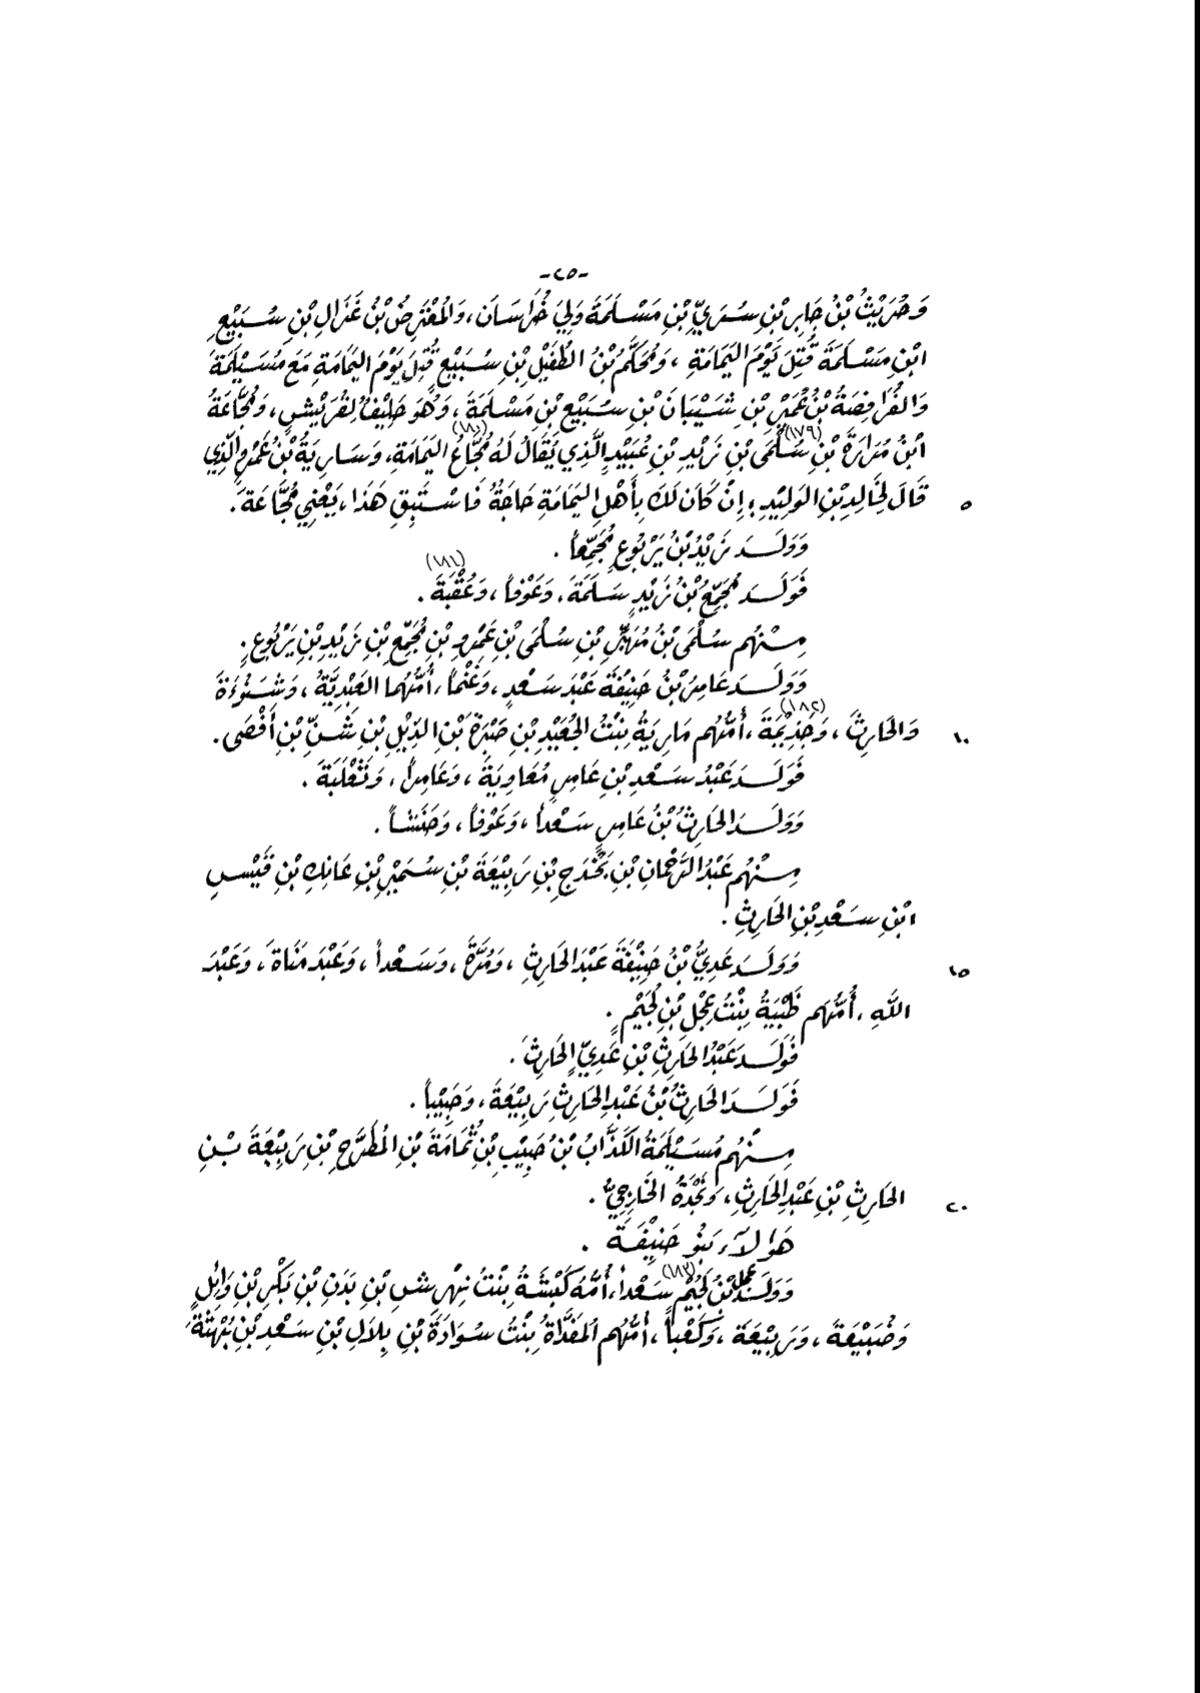 -٢٥-
وَحُرَيْثُ بْنُ جَابِرِ بْنِ سُرَيِّ بْنِ مَسْلَمَةَ وَلِيَ خُرَاسَان، وَالمُعْتَرِضُ بْنُ غَزَالِ بْنِ سُبَيْعِ
ابْنِ مَسْلَمَةَ قُتِلَ يَوْمَ اليَمَامَةِ، وَمُحَكَّمُ بْنُ الطُّفَيْلِ بْنِ سُبَيْعٍ قُتِلَ يَوْمَ اليَمَامَةِ مَعَ مُسَيْلِمَةَ
وَالفُرَافِصَةُ بْنُ عُمَيْرِ بْنِ شَيْبَانَ بْنِ سُبَيْعِ بْنِ مَسْلَمَةَ، وَهُوَ حَلِيْفٌ لِقُرَيْشٍ، وَمُجَّاعَةُ
ابْنُ مُرَارَةَ بْنِ سُلْمَى (١٧٩) بْنِ زَيْدِ بْنِ عُبَيْدٍ الَّذِي يُقَالُ لَهُ مُجَّاعُ (١٨٠) اليَمَامَةِ، وَسَارِيَةُ بْنُ عَمْرٍو الَّذِي
قَالَ لِخَالِدِ بْنِ الوَلِيْدِ: إِنْ كَانَ لَكَ بِأَهْلِ اليَمَامَةِ حَاجَةٌ فَاسْتَبِقِ هَذَا، يَعْنِي مُجَّاعَةَ. ٥
وَوَلَدَ زَيْدُ بْنُ يَرْبُوعٍ مُجَمِّعاً.
فَوَلَدَ مُجَمِّعُ بْنُ زَيْدٍ سَلَمَةَ، وَعَوْفاً، وَعُقْبَةَ (١٨١).
مِنْهُم سُلْمَى بْنُ بْنِ سُلْمَى بْنِ عَمْرِو بْنِ مُجَمِّعِ بْنِ زَيْدِ بْنِ يَرْبُوعٍ.
وَوَلَدَ عَامِرُ بْنُ حَنِيْفَةَ عَبْدَ سَعْدٍ، وَغَنْماً، أُمُّهُمَا العَبْدِيَّةُ، وَشَنُوْءَةَ
وَالحَارِثَ، وَجَذِيْمَةَ (١٨٢)، أُمُّهُم مَارِيَةُ بِنْتُ الجُعَيْدِ بْنِ صَبْرَةَ بْنِ الدِّيْلِ بْنِ شَنِّ بْنِ أَفْصَى. ١٠
فَوَلَدَ عَبْدُ سَعْدِ بْنِ عَامِرٍ مُعَاوِيَةَ، وَعَامِراً، وَثَعْلَبَةَ.
وَوَلَدَ الحَارِثُ بْنُ عَامِرٍ سَعْداً، وَعَوْفاً، وَحَنَشاً.
مِنْهُم عَبْدُ الرَّحْمَانِ بْنِ بَحْدَجِ بْنِ رَبِيْعَةَ بْنِ سُمَيْرِ بْنِ عَاتِكِ بْنِ قَيْسِ
ابْنِ سَعْدِ بْنِ الحَارِثِ.
وَوَلَدَ عَدِيُّ بْنُ حَنِيْفَةَ عَبْدَ الحَارِثِ، وَمُرَّةَ، وَسَعْداً، وَعَبْدَ مَنَاةَ، وَعَبْدَ ١٥
اللَّهِ، أُمُّهُم ظَبْيَةُ بِنْتُ عِجْلِ بْنِ لُجَيْمٍ.
فَوَلَدَ عَبْدُ الحَارِثِ بْنِ عَدِيٍّ الحَارِثَ.
فَوَلَدَ الحَارِثُ بْنُ عَبْدِ الحَارِثِ رَبِيْعَةَ، وَحَبِيْباً.
مِنْهُم مُسَيْلِمَةُ الكَذَّابُ بْنُ حَبِيْبِ بْنِ ثُمَامَةَ بْنِ المُطَرَّحِ بْنِ رَبِيْعَةَ بْنِ
الحَارِثِ بْنِ عَبْدِ الحَارِثِ، وَنَجْدَةُ الخَارِجِيُّ. ٢٠
هَؤُلآءِ بَنُو حَنِيْفَةَ.
وَوَلَدَ عِجْلُ بْنُ لُجَيْمٍ (١٨٣) سَعْداً، أُمُّهُ كَبْشَةُ بِنْتُ نِهْرِشِ بْنِ بَدَنِ بْنِ بَكْرِ بْنِ وَائِلٍ
وَضُبَيْعَةَ، وَرَبِيْعَةَ، وَكَعْباً، أُمُّهُم المُفَدَّاةُ بِنْتُ سُوَادَةَ بْنِ بِلَالِ بْنِ سَعْدِ بْنِ بُهْثَةَ